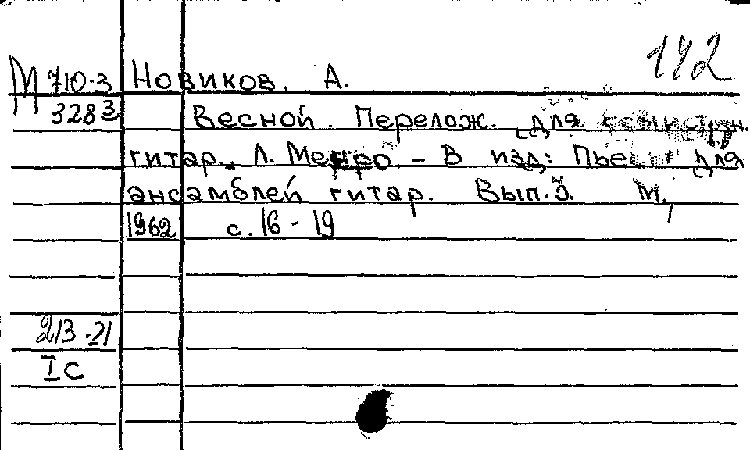 142
М 710-3 Новиков, А.
3283 Весной. Перелож. для семистр.
гитар. Л. Менро - В изд: Пьесы для
ансамблей гитар. Вып. 3. М.,
1962 с. 16 - 19
213-21
I c